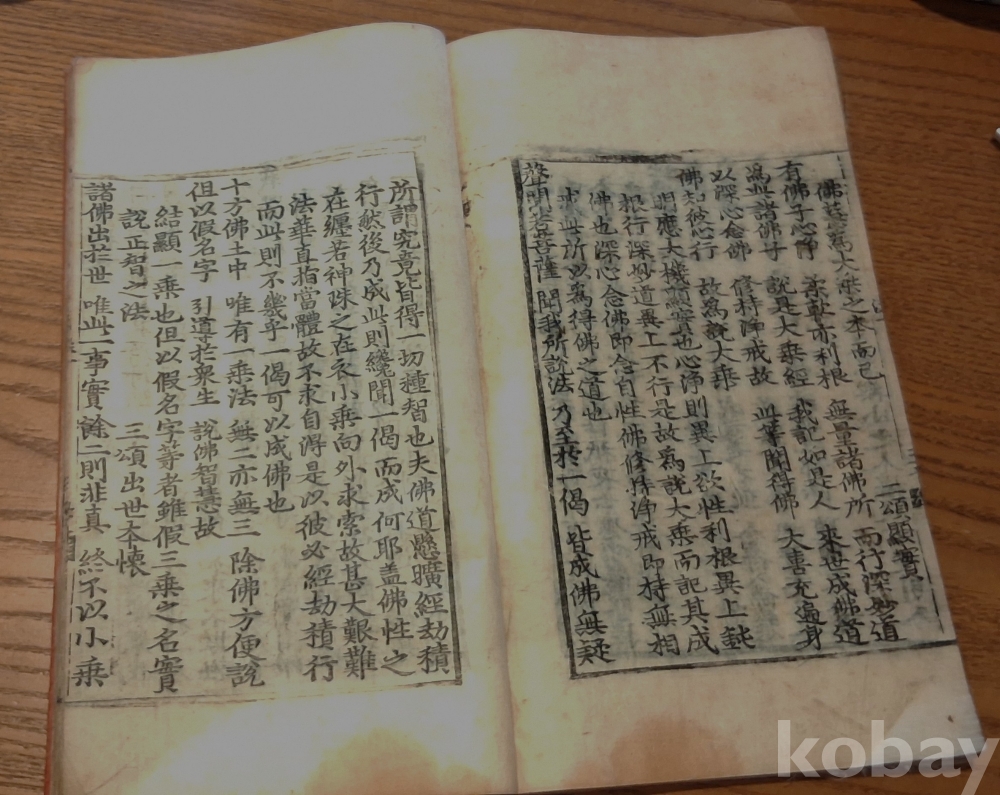 爲大乘之本而已 二頌顯實
有佛子心淨 柔軟亦利根 無量諸佛所 而行深妙道
爲此諸佛子 說是大乘經 我記如是人 來世成佛道
以深心念佛 修持淨戒故 此等聞得佛 大喜充遍身
佛知彼心行 故爲說大乘
明應大機顯實也心淨則異上欲性利根異上鈍
根行深妙道異上不行是故爲說大乘而記其成
佛也深心念佛即念自性佛修持淨戒即持無相
戒此所以爲得佛之道也
聲聞若菩薩 聞我所說法 乃至於一偈 皆成佛無疑
所謂究竟皆得一切種智也夫佛道懸曠經劫積
行然後乃成此則纔聞一偈而成何耶盖佛性之
在纏若神珠之在衣小乘向外求索故甚大艱難
法華直指當體故不求自得是以彼必經劫積行
而此則不幾乎一偈可以成佛也
十方佛土中 唯有一乘法 無二亦無三 除佛方便說
但以假名字 引導於衆生 說佛智慧故
結顯一乘也但以假名字等者雖假三乘之名實
說正智之法 三頌出世本懷
諸佛出於世 唯此一事實 餘二則非真 終不以小乘
kobay